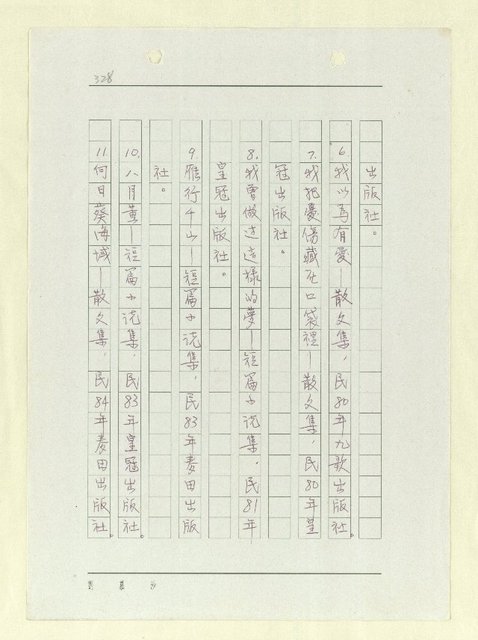 328
出版社。
6.我以為有愛—散文集,民80年九歌出版社。
7.我把憂傷藏在口袋裡—散文集,民80年皇
冠出版社。
8.我曾做過這樣的夢—短篇小說集,民81年
皇冠出版社。
9.雁行千山—短篇小說集,民83年麥田出版
社。
10.八月黃—短篇小說集,民83年皇冠出版社。
11.何日葵海域—散文集,民84年麥田出版社。
劉慕沙